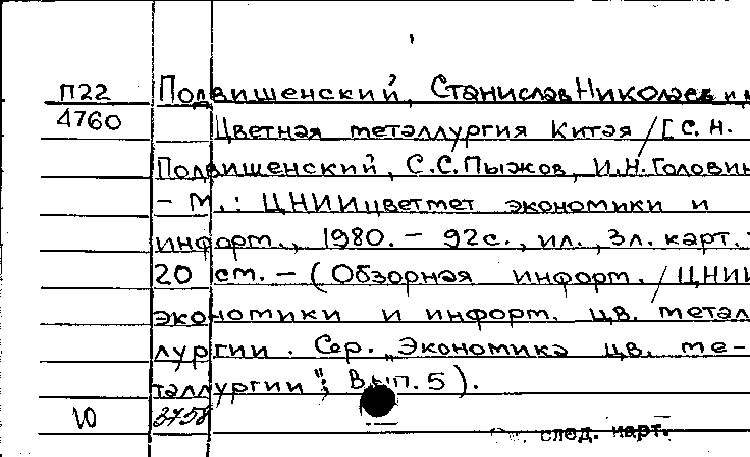 П22 Подвишенский, Станислав Николаевич,
4760 Цветная металлургия Китая / [С.Н.
Подвишенский, С.С. Пыжов, И.Н. Головин
– М.: ЦНИИцветмет экономики и
информ., 1980. – 92с., ил., 3л. карт.;
20 см. – (Обзорная информ. / ЦНИИ
экономики и информ. цв. метал
лургии. Сер. „Экономика цв. ме-
таллургии"; Вып. 5).
след. карт.